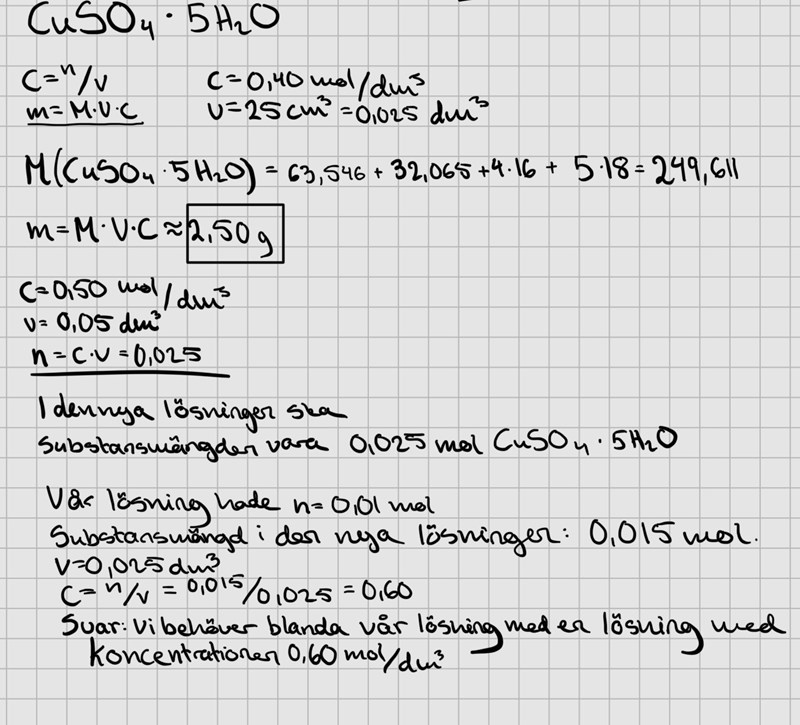 CuSO₄ · 5H₂O
C=n/v C=0,40 mol/dm³
m=M·V·C V=25 cm³=0,025 dm³
M(CuSO₄·5H₂O) = 63,546 + 32,065+4·16 + 5·18=249,611
m=M·V·C≈2,50 g
C=0,50 mol/dm³
V= 0,05 dm³
n=C·V=0,025
I den nya lösningen ska
Substansmängden vara 0,025 mol CuSO₄·5H₂O
Vår lösning hade n=0,01 mol
Substansmängd i den nya lösningen: 0,015 mol.
V=0,025 dm³
C= n/v = 0,015/0,025 = 0,60
Svar: Vi behöver blanda vår lösning med en lösning med
koncentrationen 0,60 mol/dm³